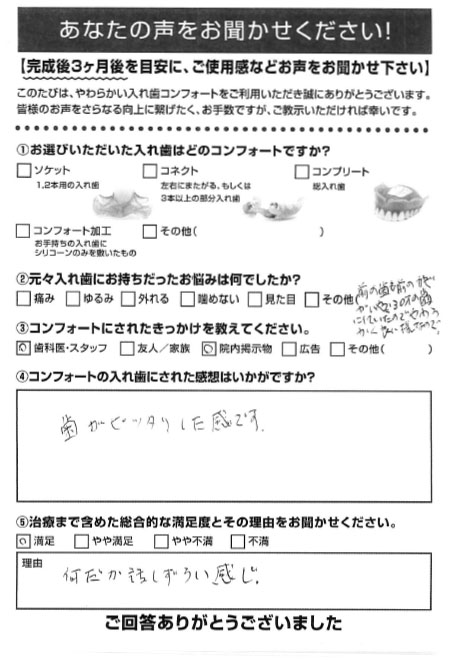 あなたの声をお聞かせください!
【完成後3ヶ月後を目安に、ご使用感などお声をお聞かせ下さい】
このたびは、やわらかい入れ歯コンフォートをご利用いただき誠にありがとうございます。
皆様のお声をさらなる向上に繋げたく、お手数ですが、ご教示いただければ幸いです。
①お選びいただいた入れ歯はどのコンフォートですか?
□ソケット □コネクト □コンプリート
1,2本用の入れ歯 左右にまたがる、もしくは 総入れ歯
3本以上の部分入れ歯
□コンフォート加工 □その他( )
お手持ちの入れ歯に
シリコーンのみを敷いたもの
②元々入れ歯にお持ちだったお悩みは何でしたか?
□痛み □ゆるみ □外れる □噛めない □見た目 □その他
前の歯
③コンフォートにされたきっかけを教えてください。
☑歯科医・スタッフ □友人/家族 ☑院内掲示物 □広告 □その他( )
④コンフォートの入れ歯にされた感想はいかがですか?
歯がピッタリした感です.
⑤治療まで含めた総合的な満足度とその理由をお聞かせください。
☑満足 □やや満足 □やや不満 □不満
理由
何だか話しずらい感じ.
ご回答ありがとうございました